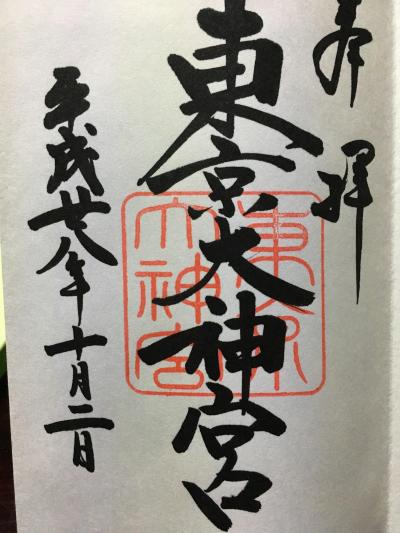 奉拝
東京大神宮
東京大神宮
平成廿八年十月二日